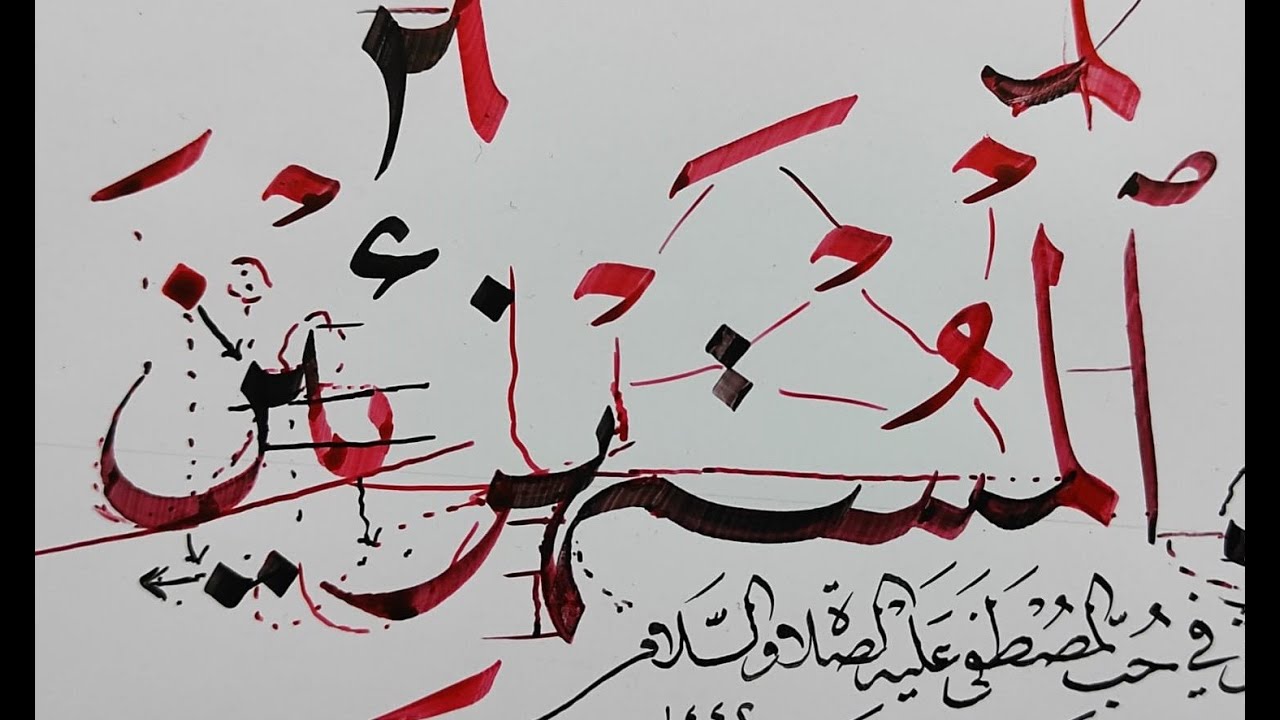 ٱلْمُسْتَهْزِئِينَ
في حُبِّ المصْطَفَى عَلَيه الصلاة والسَّلام
١٤٤٢